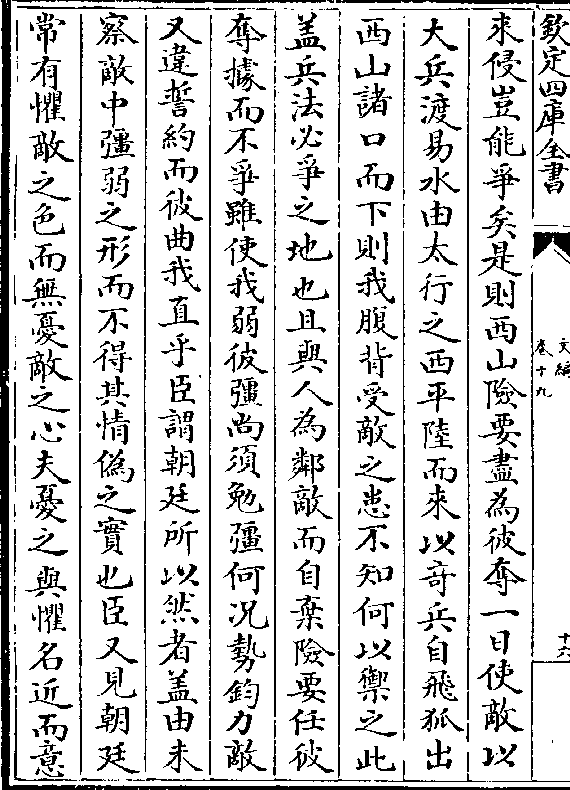 欽定四庫全書
文編
卷十九
十六
来侵豈能爭矣是則西山險要盡為彼奪一日使敵以
大兵渡易水由太行之西平陸而来以竒兵自飛狐出
西山諸口而下則我腹背受敵之患不知何以禦之此
盖兵法必爭之地也且與人為鄰敵而自棄險要任彼
奪據而不爭雖使我弱彼彊尚須勉彊何况勢鈞力敵
又違誓約而彼曲我直乎臣謂朝廷所以然者盖由未
察敵中彊弱之形而不得其情偽之實也臣又見朝廷
常有懼敵之色而無憂敵之心夫憂之與懼名近而意